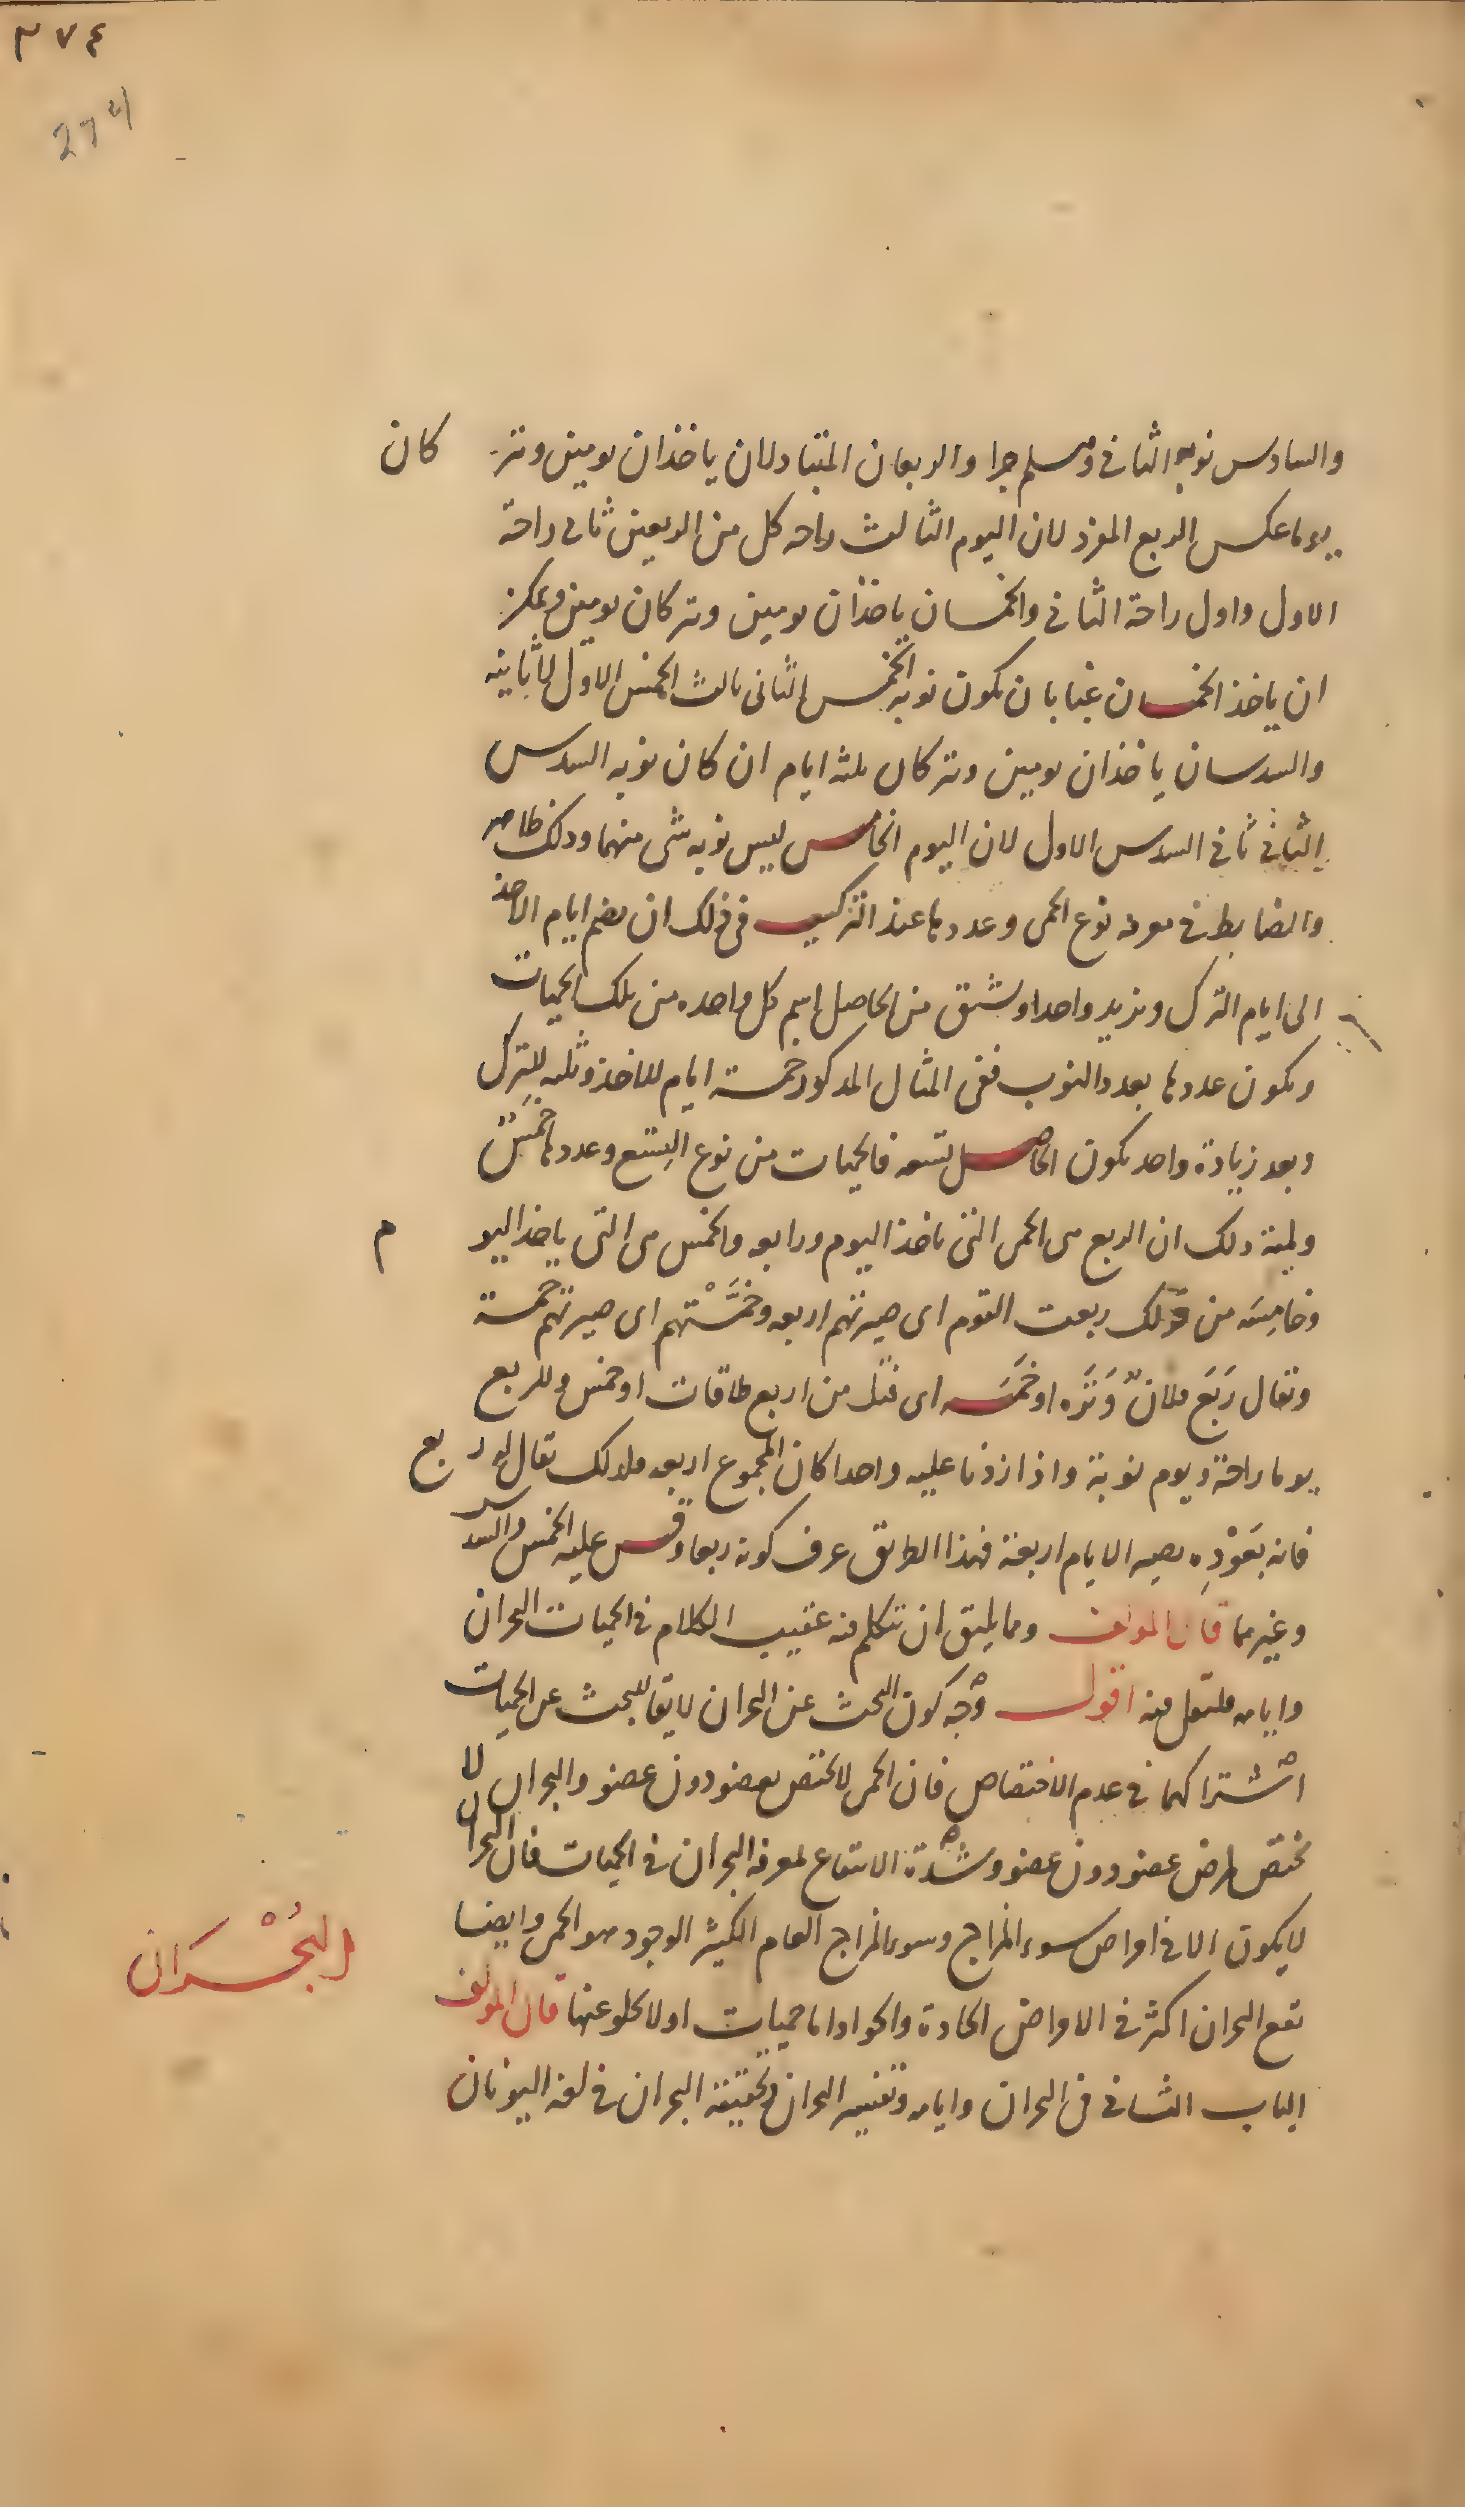 ٣٧٤
274
والسادس نوبة الثانى وهلم جرا والربعان المتبادلان ياخذان يومين وتتركان
يوما عكس الربع المفرد لان اليوم الثالث راحه كل من الربعين ثانى راحة
الاول واول راحة الثانى والخمسان ياخذان يومين وتتركان يومين ويمكن
ان ياخذ الخمسان غبا بان يكون نوبه الخمس الثانى ثالث الخمس الاول لا ثانيه
والسدسان ياخذان يومين وتتركان ثلثه ايام ان كان نوبه السدس
الثانى ثانى السدس الاول لان اليوم الخامس ليس نوبه شى منهما وذلك ظاهر
والضابط فى معرفه نوع الحمى وعددها عند التركيب فى ذلك ان يضم ايام الاخذ
الى ايام الترك ونزيد واحدا ويشتق من الحاصل اسم كل واحده من تلك الحميات
ويكون عددها بعدد النوب ففى المثال المذكور خمسة ايام للاخذ وثلثه للترك
وبعد زيادة واحد يكون الحاصل تسعه فالحميات من نوع التسع وعددها خمس
ولمية ذلك ان الربع هى الحمى التى تاخذ اليوم ورابعه والخمس هى التى ياخذ اليوم
وخامسه من قولك ربعت القوم اى صيرتهم اربعه وخمستهم اى صيرتهم خمسة
ويقال ربع فلان وتره او خمسه اى فتل من اربع طاقات او خمس وللربع
يوما راحة ويوم نوبة واذا زدنا عليه واحدا كان المجموع اربعه فلذلك يقال له ربع
فانه بعوده يصير الايام اربعة فبهذا الطريق عرف كونه ربعا وقس عليه الخمس والسدس
وغيرهما قال المولف ومما يليق ان نتكلم فيه عقيب الكلام فى الحميات البحران
وايامه فلنقل فيه اقول وجه كون البحث عن البحران لايقا للبحث عن الحميات
اشتراكهما فى عدم الاختصاص فان الحمى لا يختص بعضو دون عضو والبحران لا
يختص بمرض عضو دون عضو وشدة الانتفاع لمعرفه البحران فى الحميات فان البحران
لا يكون الا فى امراض سوء المزاج وسوء المزاج العام الكثير الوجود هو الحمى وايضا
يقع البحران اكثر فى الامراض الحادة والحواد اما حميات او لا يخلو عنها قال المولف
الباب الثانى فى البحران وايامه وتفسير البحران وتحقيقه البحران فى لغه اليونان
البُحْرَان